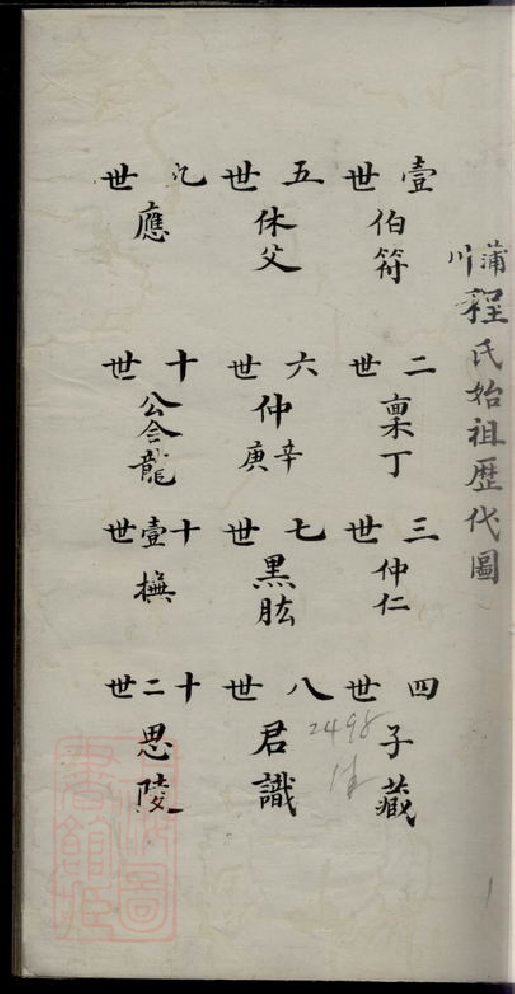 蒲川程氏始祖歷代圖
壹世 伯符
二世 稟丁
三世 仲仁
四世 子藏
五世 休父
六世 仲辛庚
七世 黑肱
八世 君識
九世 應
十世 公會龍
十壹世 撫
十二世 思陵
2498
上海圖書館藏